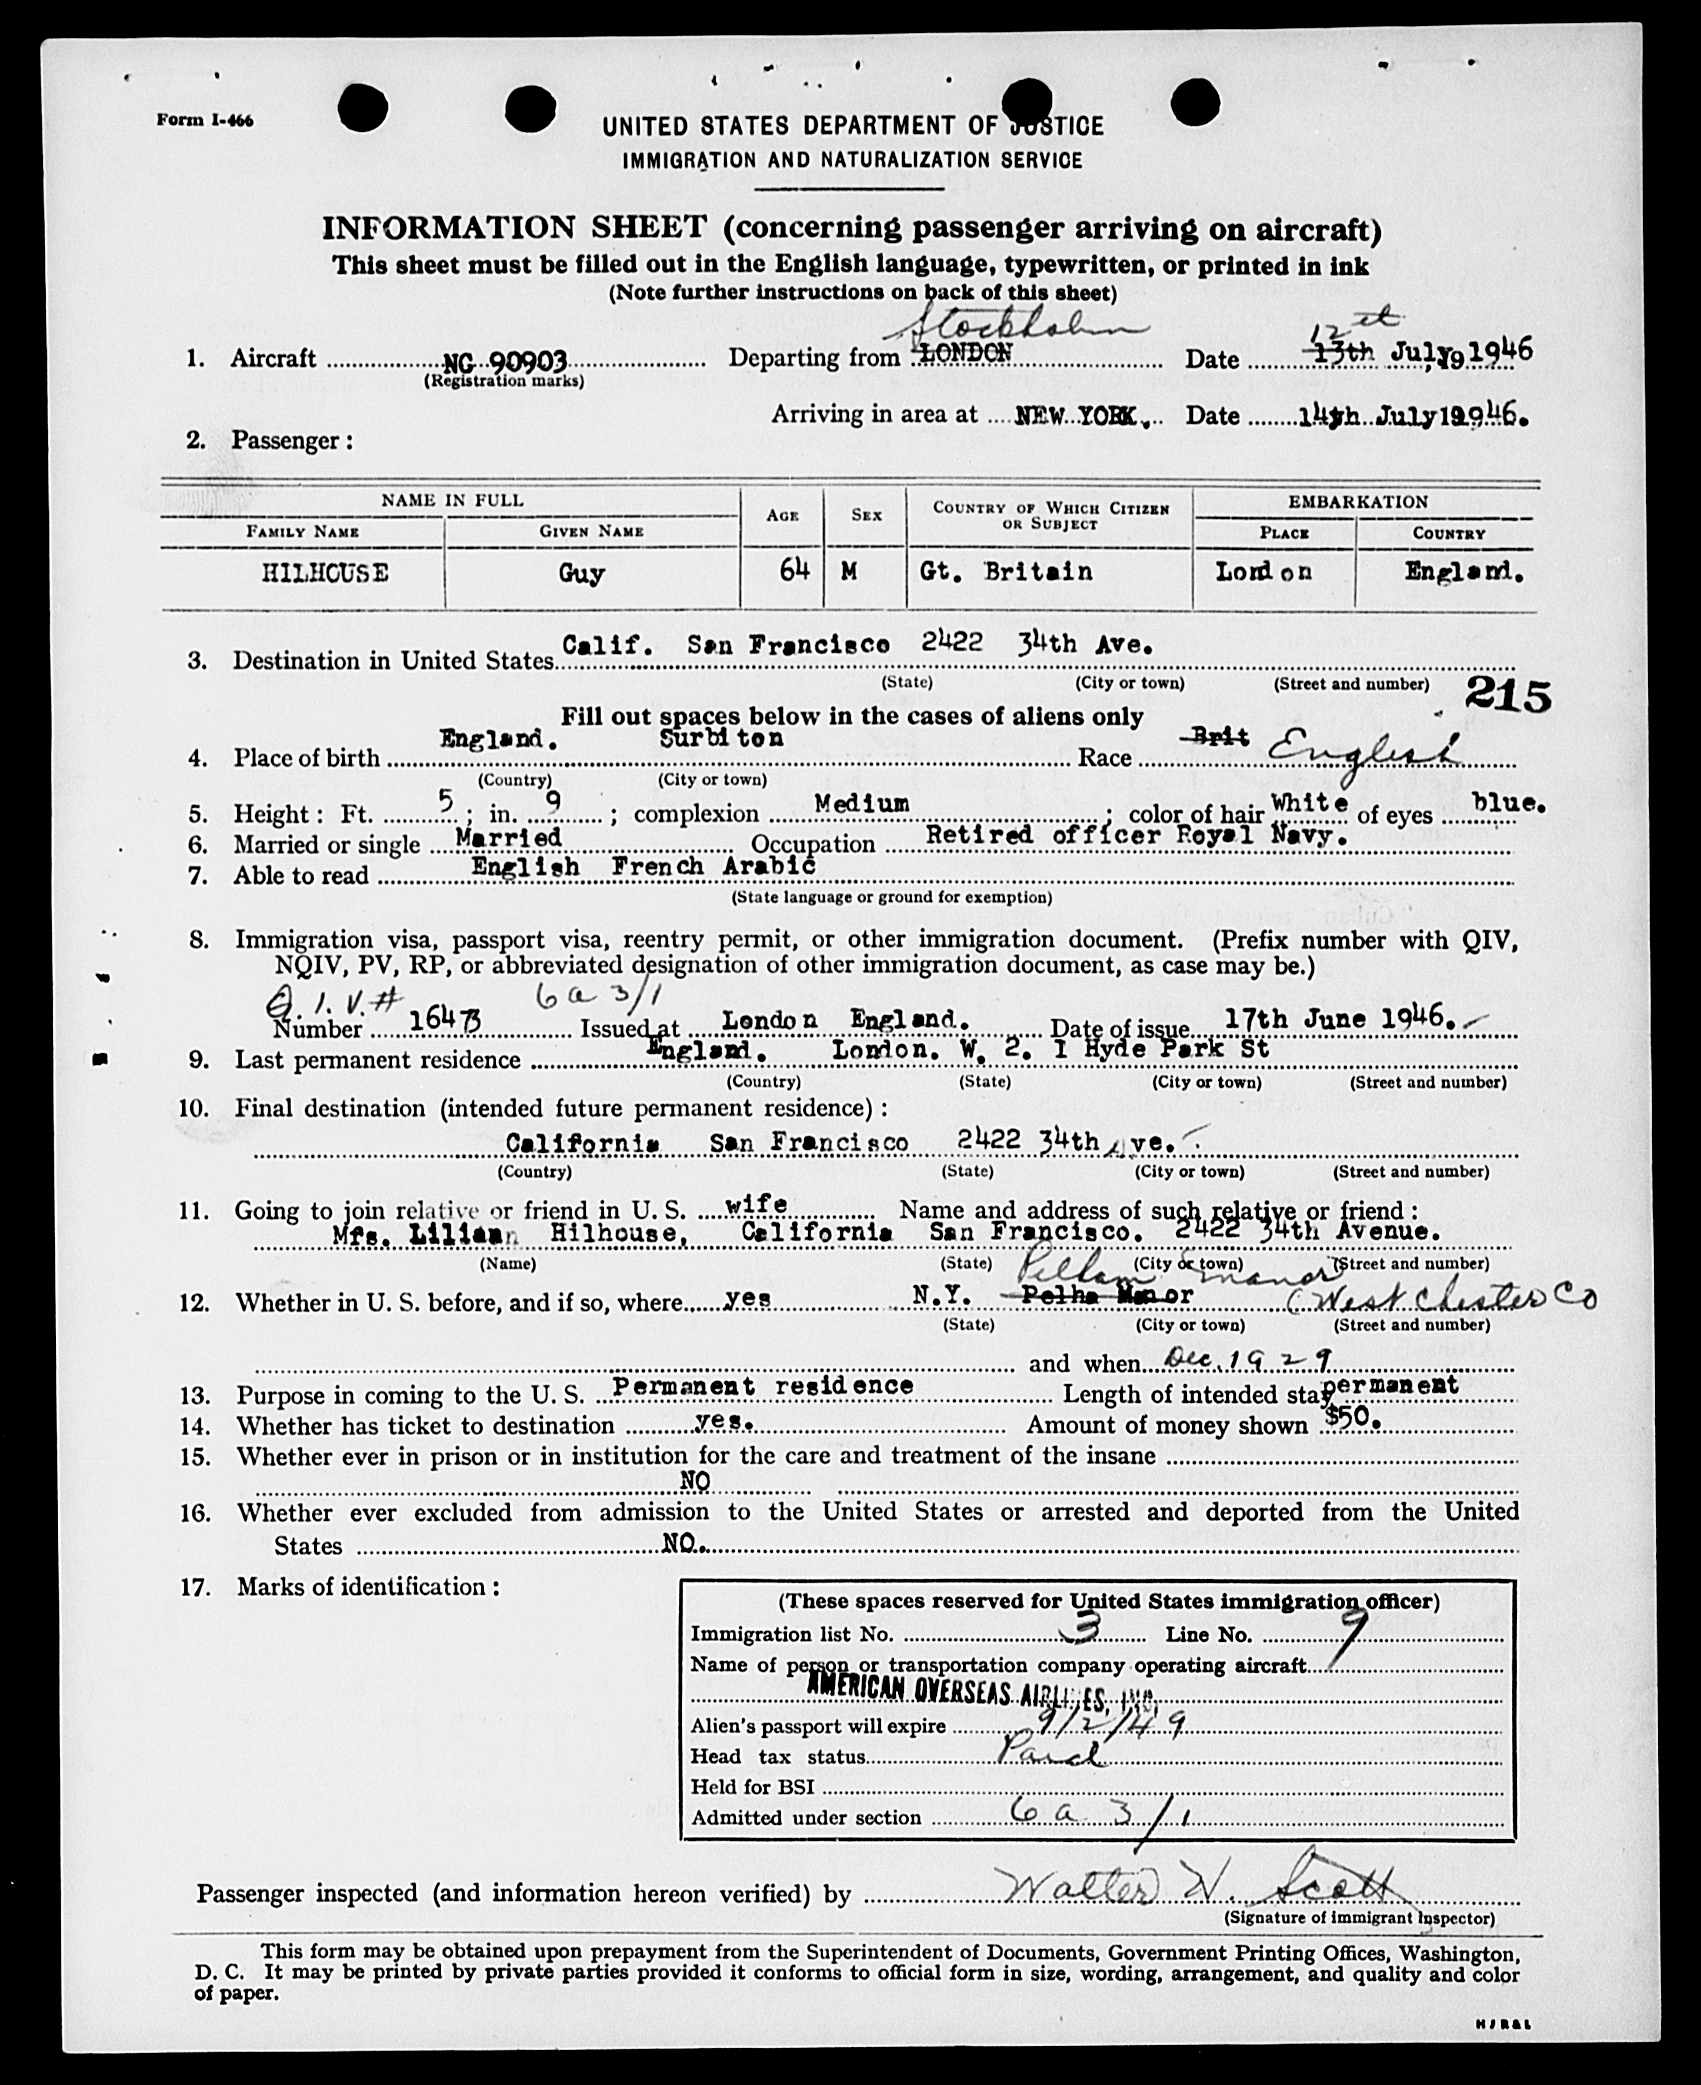 Form I-466
UNITED STATES DEPARTMENT OF JUSTICE
IMMIGRATION AND NATURALIZATION SERVICE
INFORMATION SHEET (concerning passenger arriving on aircraft)
This sheet must be filled out in the English language, typewritten, or printed in ink
(Note further instructions on back of this sheet)
Stockholm 12
1. Aircraft NC 90903 Departing from LONDON Date 13th July 1946
(Registration marks)
Arriving in area at NEW YORK. Date 14th July 1946.
2. Passenger:
NAME IN FULL AGE SEX COUNTRY OF WHICH CITIZEN OR SUBJECT EMBARKATION
FAMILY NAME GIVEN NAME PLACE COUNTRY
HILHOUSE Guy 64 M Gt. Britain London England.
3. Destination in United States Calif. San Francisco 2422 34th Ave.
(State) (City or town) (Street and number)
215
Fill out spaces below in the cases of aliens only
4. Place of birth England. Surbiton Race Brit English
(Country) (City or town)
5. Height: Ft. 5; in. 9; complexion Medium; color of hair White of eyes blue.
6. Married or single Married Occupation Retired officer Royal Navy.
7. Able to read English French Arabic
(State language or ground for exemption)
8. Immigration visa, passport visa, reentry permit, or other immigration document. (Prefix number with QIV,
NQIV, PV, RP, or abbreviated designation of other immigration document, as case may be.)
Q.I.V.# 6a 3/1
Number 1647B Issued at London England. Date of issue 17th June 1946.
9. Last permanent residence England. London. W. 2. 1 Hyde Park St
(Country) (State) (City or town) (Street and number)
10. Final destination (intended future permanent residence):
California San Francisco 2422 34th Ave.
(Country) (State) (City or town) (Street and number)
11. Going to join relative or friend in U. S. wife Name and address of such relative or friend:
Mrs. Lilian Hilhouse, California San Francisco. 2422 34th Avenue.
(Name) (State) (City or town) (Street and number)
Pelham Manor
12. Whether in U. S. before, and if so, where yes N.Y. Pelha Manor (West Chester Co
(State) (City or town) (Street and number)
and when Dec. 1929
13. Purpose in coming to the U. S. Permanent residence Length of intended stay permanent
14. Whether has ticket to destination yes. Amount of money shown $50.
15. Whether ever in prison or in institution for the care and treatment of the insane
NO
16. Whether ever excluded from admission to the United States or arrested and deported from the United
States NO.
17. Marks of identification:
(These spaces reserved for United States immigration officer)
Immigration list No. 3 Line No. 9
Name of person or transportation company operating aircraft
AMERICAN OVERSEAS AIRLINES, INC.
Alien's passport will expire 9/2/49
Head tax status Paid
Held for BSI
Admitted under section 6a 3/1
Passenger inspected (and information hereon verified) by Walter W. Scott
(Signature of immigrant inspector)
This form may be obtained upon prepayment from the Superintendent of Documents, Government Printing Offices, Washington,
D. C. It may be printed by private parties provided it conforms to official form in size, wording, arrangement, and quality and color
of paper.